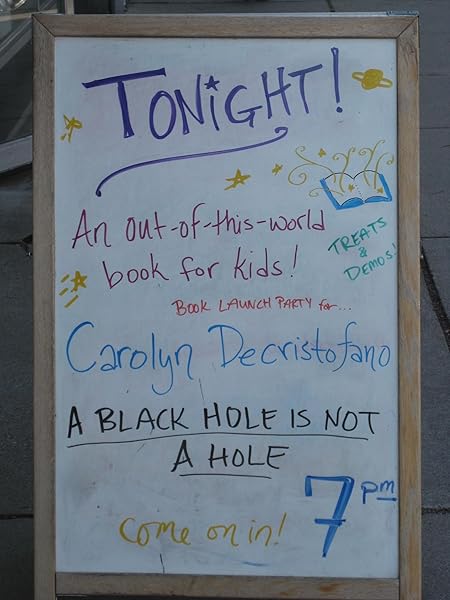 TONiGHT!
An out-of-this-world
book for kids!
TREATS
&
DEMOS!
BOOK LAUNCH PARTY for...
Carolyn Decristofano
A BLACK HOLE IS NOT
A HOLE
7pm
come on in!